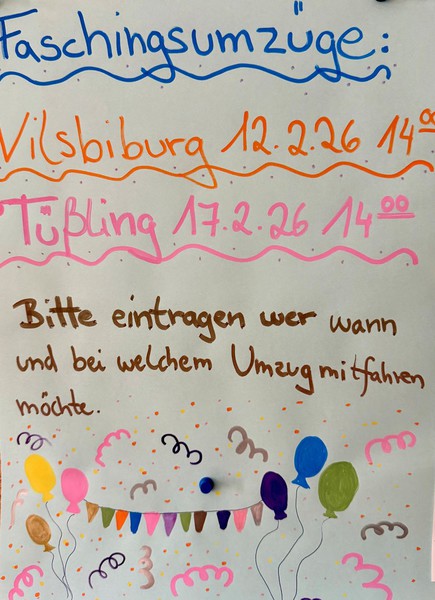 Faschingsumzüge:
Vilsbiburg 12.2.26 14⁰⁰
Tüßling 17.2.26 14⁰⁰
Bitte eintragen wer wann
und bei welchem Umzug mitfahren
möchte.